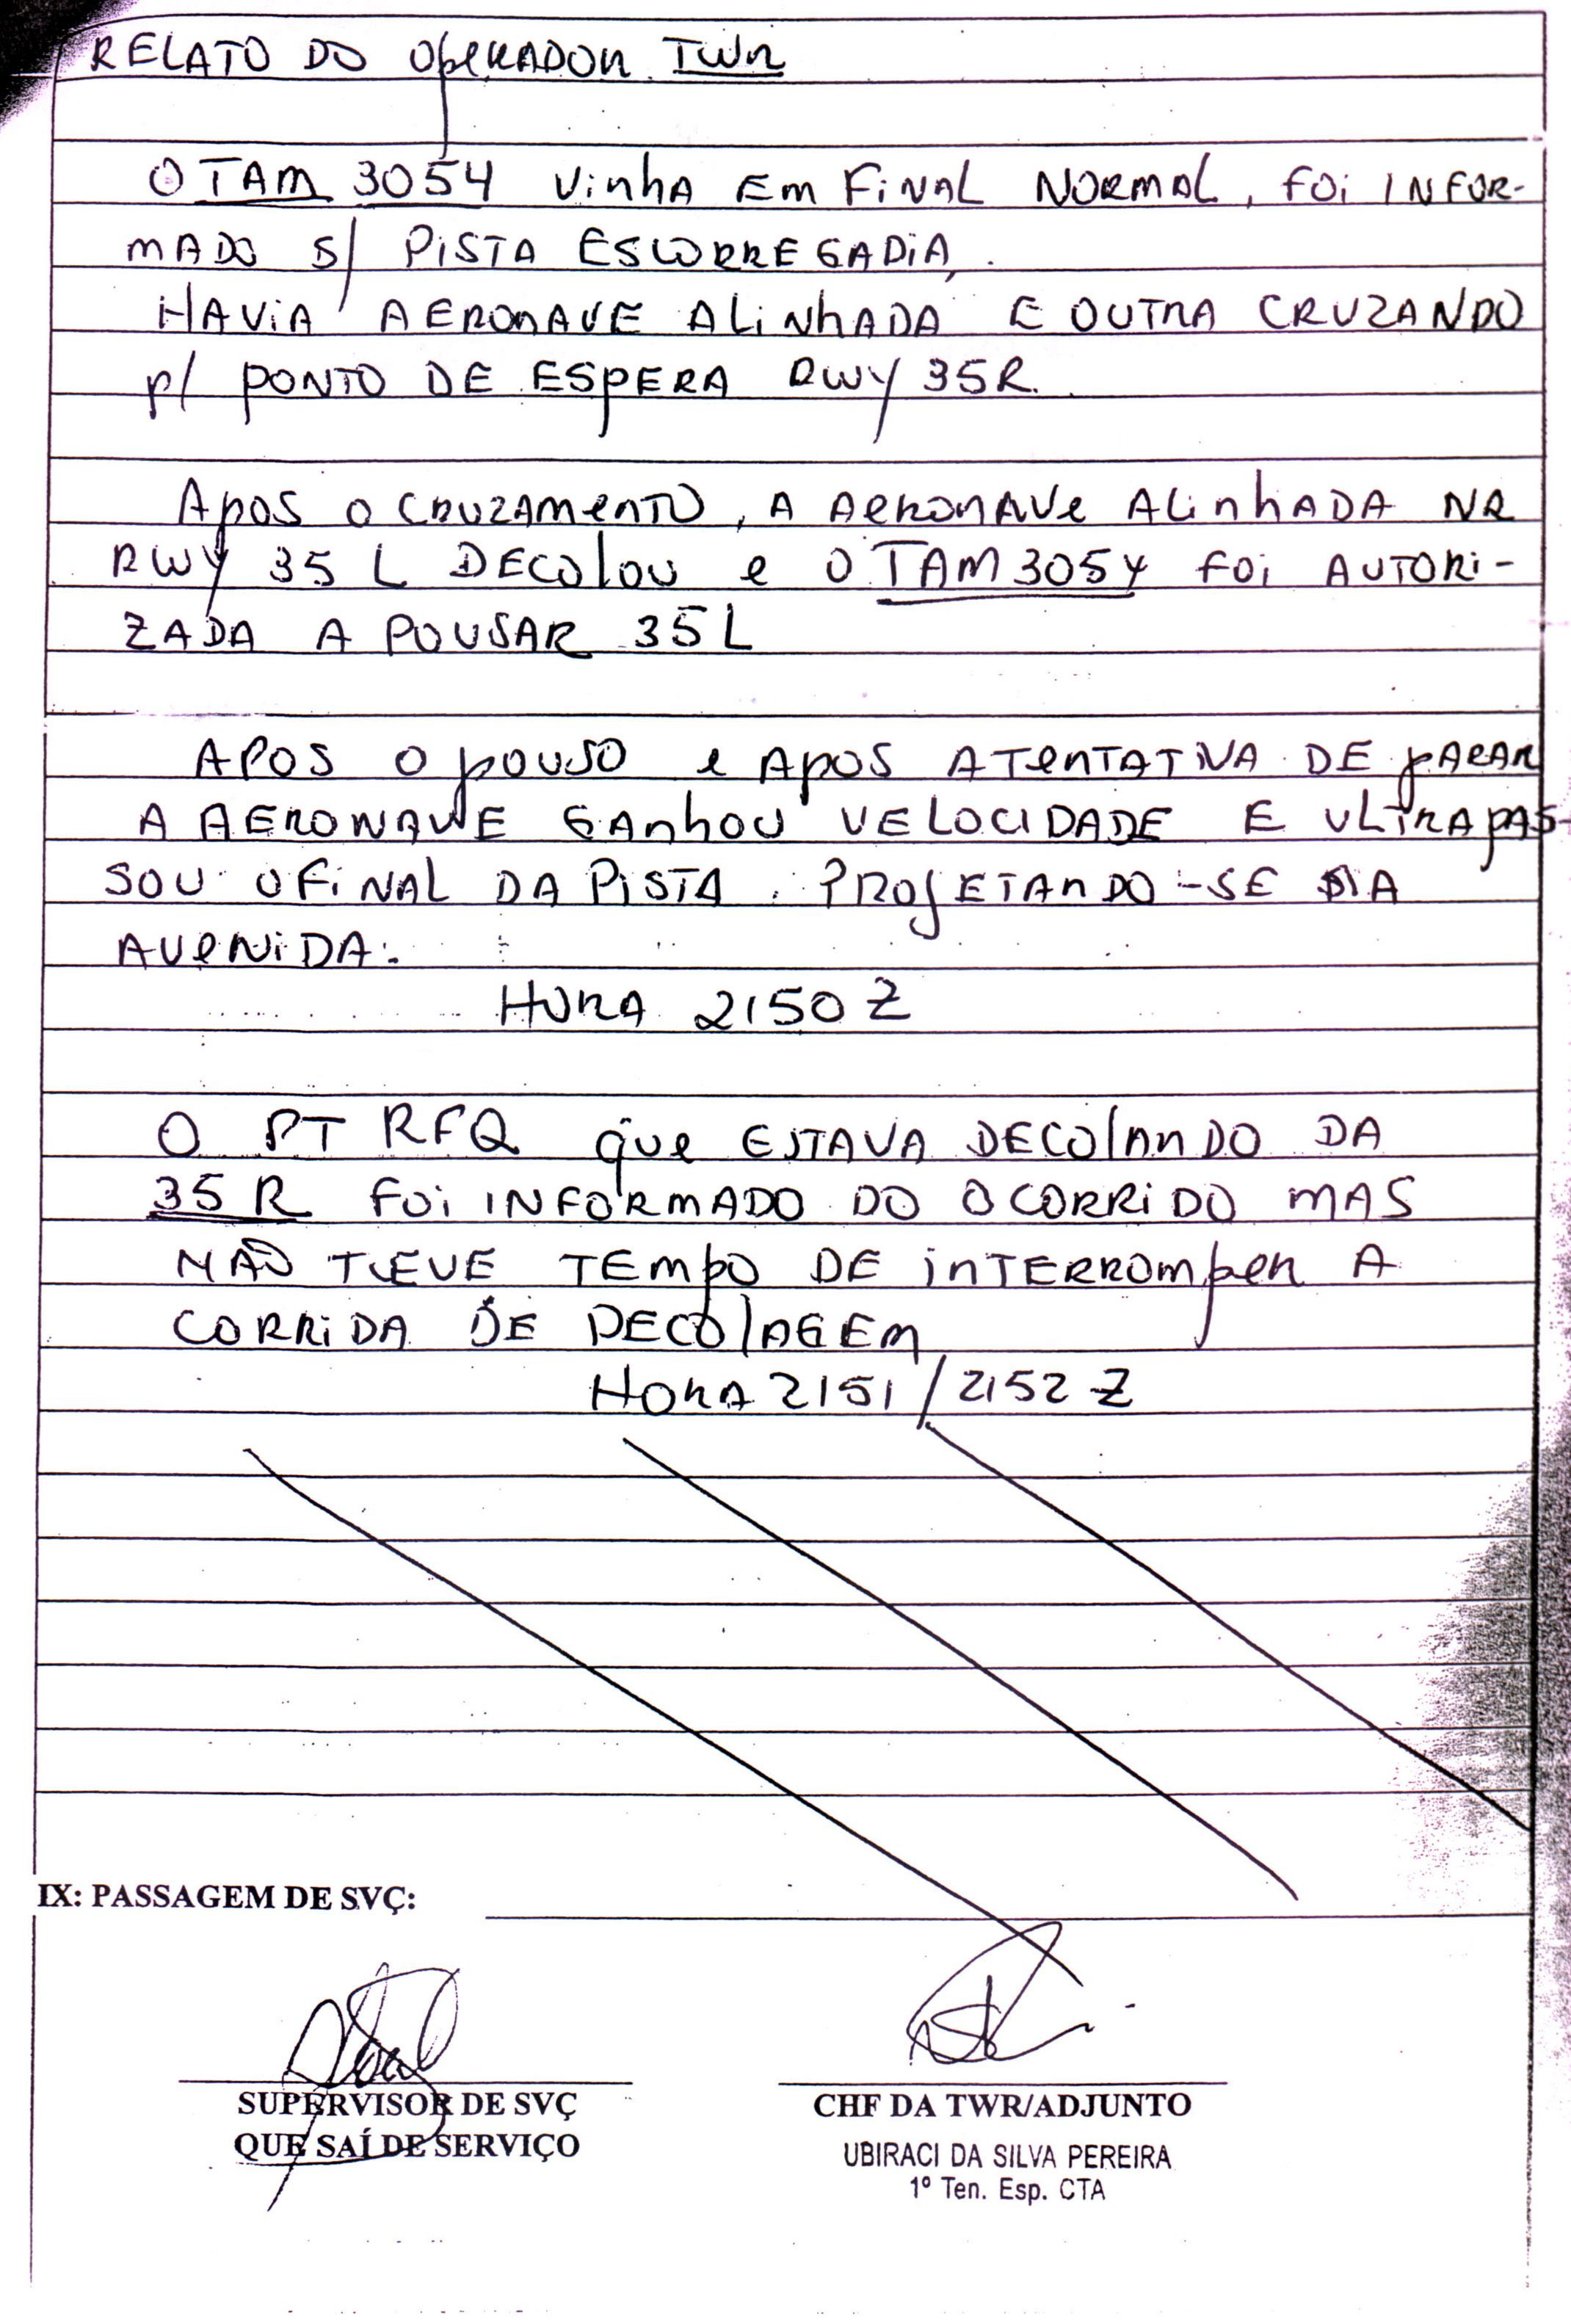 RELATO DO OPERADOR TWR
O TAM 3054 VINHA EM FINAL NORMAL, FOI INFOR-
MADO S/ PISTA ESCORREGADIA.
HAVIA AERONAVE ALINHADA E OUTRA CRUZANDO
P/ PONTO DE ESPERA RWY 35R.
APOS O CRUZAMENTO, A AERONAVE ALINHADA NA
RWY 35 L DECOLOU E O TAM 3054 FOI AUTORI-
ZADA A POUSAR 35 L
APOS O POUSO E APOS A TENTATIVA DE PARAR
A AERONAVE GANHOU VELOCIDADE E ULTRAPAS-
SOU O FINAL DA PISTA. PROJETANDO-SE NA
AVENIDA.
HORA 2150 Z
O PT RFQ QUE ESTAVA DECOLANDO DA
35 R FOI INFORMADO DO OCORRIDO MAS
NÃO TEVE TEMPO DE INTERROMPER A
CORRIDA DE DECOLAGEM
HORA 2151 / 2152 Z
IX: PASSAGEM DE SVÇ:
SUPERVISOR DE SVÇ
QUE SAÍ DE SERVIÇO
CHF DA TWR/ADJUNTO
UBIRACI DA SILVA PEREIRA
1º Ten. Esp. CTA